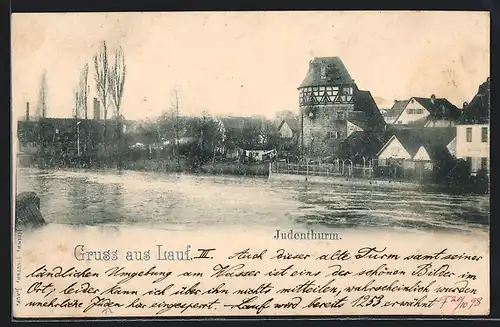 Judenthurm.
Gruss aus Lauf. III. Auch dieser alte Turm samt seiner
ländlichen Umgebung am Wasser ist eins der schönen Bilder im
Ort, leider kann ich über ihn nichts mitteilen, wahrscheinlich wurden
unehrliche Juden hier eingesperrt. Lauf wird bereits 1253 erwähnt 98